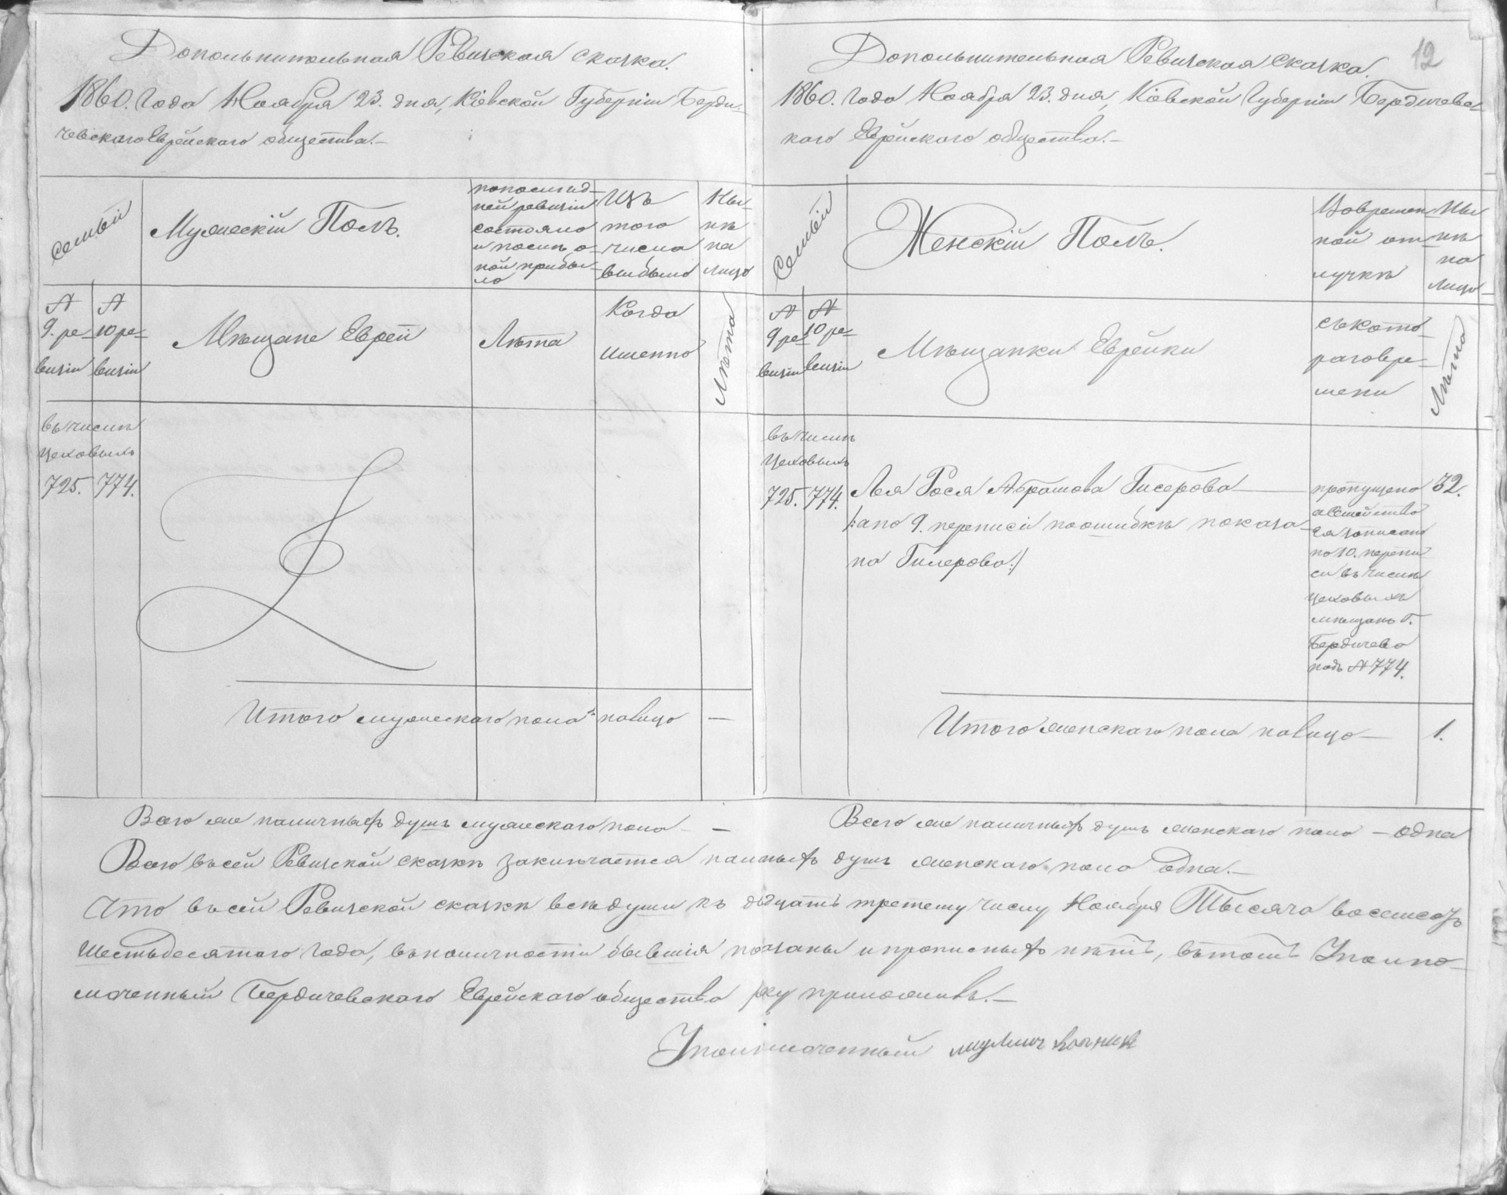 Дополнительная Ревизская сказка.
1860. Года Ноября 23. дня, Кіевской Губерніи Берди-
чевскаго Еврейскаго общества.—
Семьи
Мужескій Полъ.
по послед-
ней ревизіи
состояло
и послѣ о-
ной прибы-
ло
Изъ
того
числа
выбыло
Ны-
нѣ
на
лицо
№
9. ре-
визіи
№
10 ре-
визіи
Мѣщане Евреи
Лѣта
Когда
именно
Лѣта
въ числѣ
цеховыхъ
725. 774.
Итого мужескаго пола на лицо —
12
Дополнительная Ревизская Сказка.
1860. Года Ноября 23. дня, Кіевской Губерніи Бердичевс-
каго Еврейскаго общества.—
Семьи
Женскій Полъ.
Во времен-
ной от-
лучкѣ
Ны-
нѣ
на
лицо
№
9 ре-
визіи
№
10 ре-
визіи
Мѣщанки Еврейки
съ кото-
раго вре-
мени
Лѣта
въ числѣ
цеховыхъ
725. 774. Лея Рося Абрамова Гисерова —
/:а по 9. переписи по ошибкѣ показа-
на Гилерова:/
пропущено
а семейство
ея записано
по 10. перепи-
си въ числѣ
цеховыхъ
мѣщанъ Г.
Бердичева
подъ №774.
32.
Итого женскаго пола на лицо — 1.
Всего же наличныхъ душъ мужескаго пола — —
Всего же наличныхъ душъ женскаго пола — одна
Всего въ сей Ревизской сказкѣ заключается наличныхъ душъ женскаго пола одна.—
Что въ сей Ревизской сказкѣ всѣ души къ двадцать третему числу Ноября Тысяча восемсотъ
Шестьдесятаго Года, въ наличности бывшія показаны и прописныхъ нѣтъ, въ томъ Уполно-
моченный Бердичевскаго Еврейскаго общества руку приложивъ.—
Уполномоченный